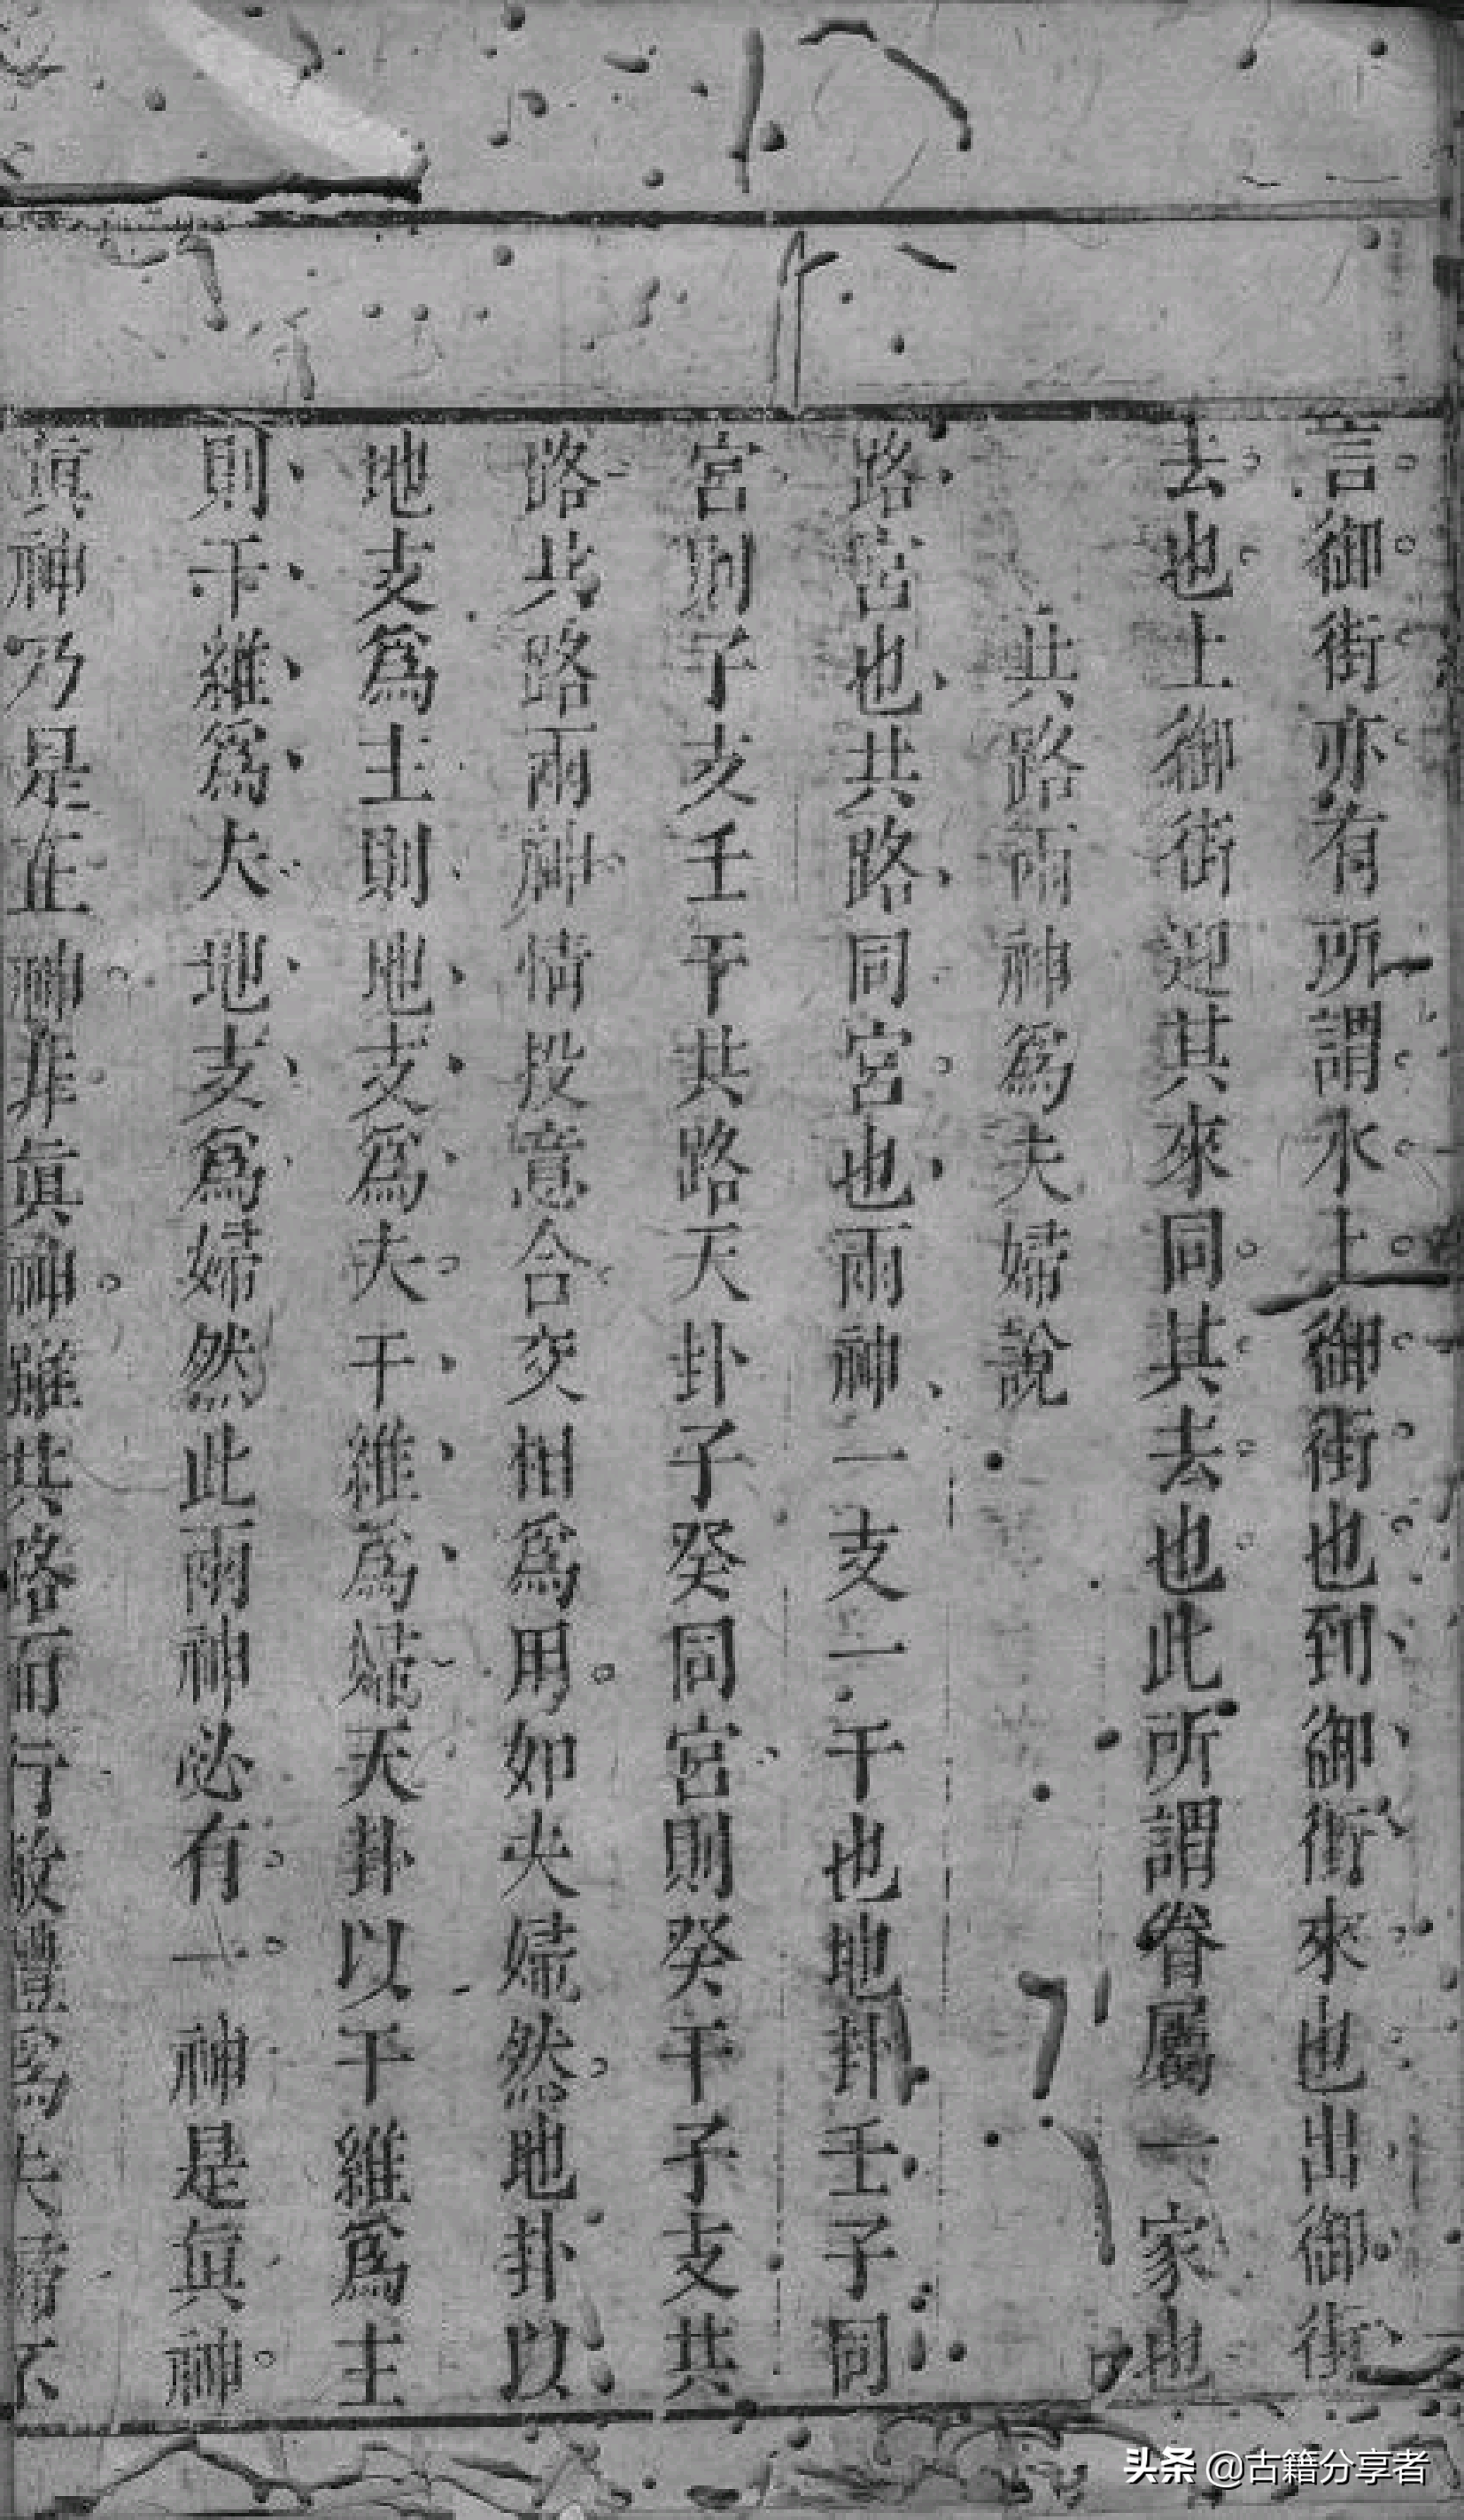 言御街亦有所謂水上御街也到御街來也出御街
去也上御街迎其來同其去也此所謂眷屬一家也
共路兩神為夫婦說
路宮也共路同宮也兩神一支一干也地卦壬子同
宮則子支壬干共路天卦子癸同宮則癸干子支共
路共路兩神情投意合交相為用如夫婦然地卦以
地支為主則地支為夫干維為婦天卦以干維為主
則干維為夫地支為婦然此兩神必有一神是眞神
眞神乃是正神非眞神雖共路而行敵體為夫婦不
头条 @古籍分享者